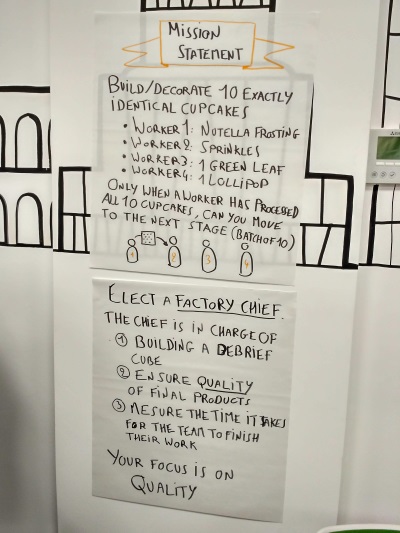 MISSION
STATEMENT
BUILD/DECORATE 10 EXACTLY
IDENTICAL CUPCAKES
• WORKER 1: NUTELLA FROSTING
• WORKER 2: SPRINKLES
• WORKER 3: 1 GREEN LEAF
• WORKER 4: 1 LOLLIPOP
ONLY WHEN A WORKER HAS PROCESSED
ALL 10 CUPCAKES, CAN YOU MOVE
TO THE NEXT STAGE (BATCH OF 10)
1 2 3 4
ELECT A FACTORY CHIEF.
THE CHIEF IS IN CHARGE OF
① BUILDING A DEBRIEF
CUBE
② ENSURE QUALITY
OF FINAL PRODUCTS
③ MESURE THE TIME IT TAKES
FOR THE TEAM TO FINISH
THEIR WORK
YOUR FOCUS IS ON
QUALITY